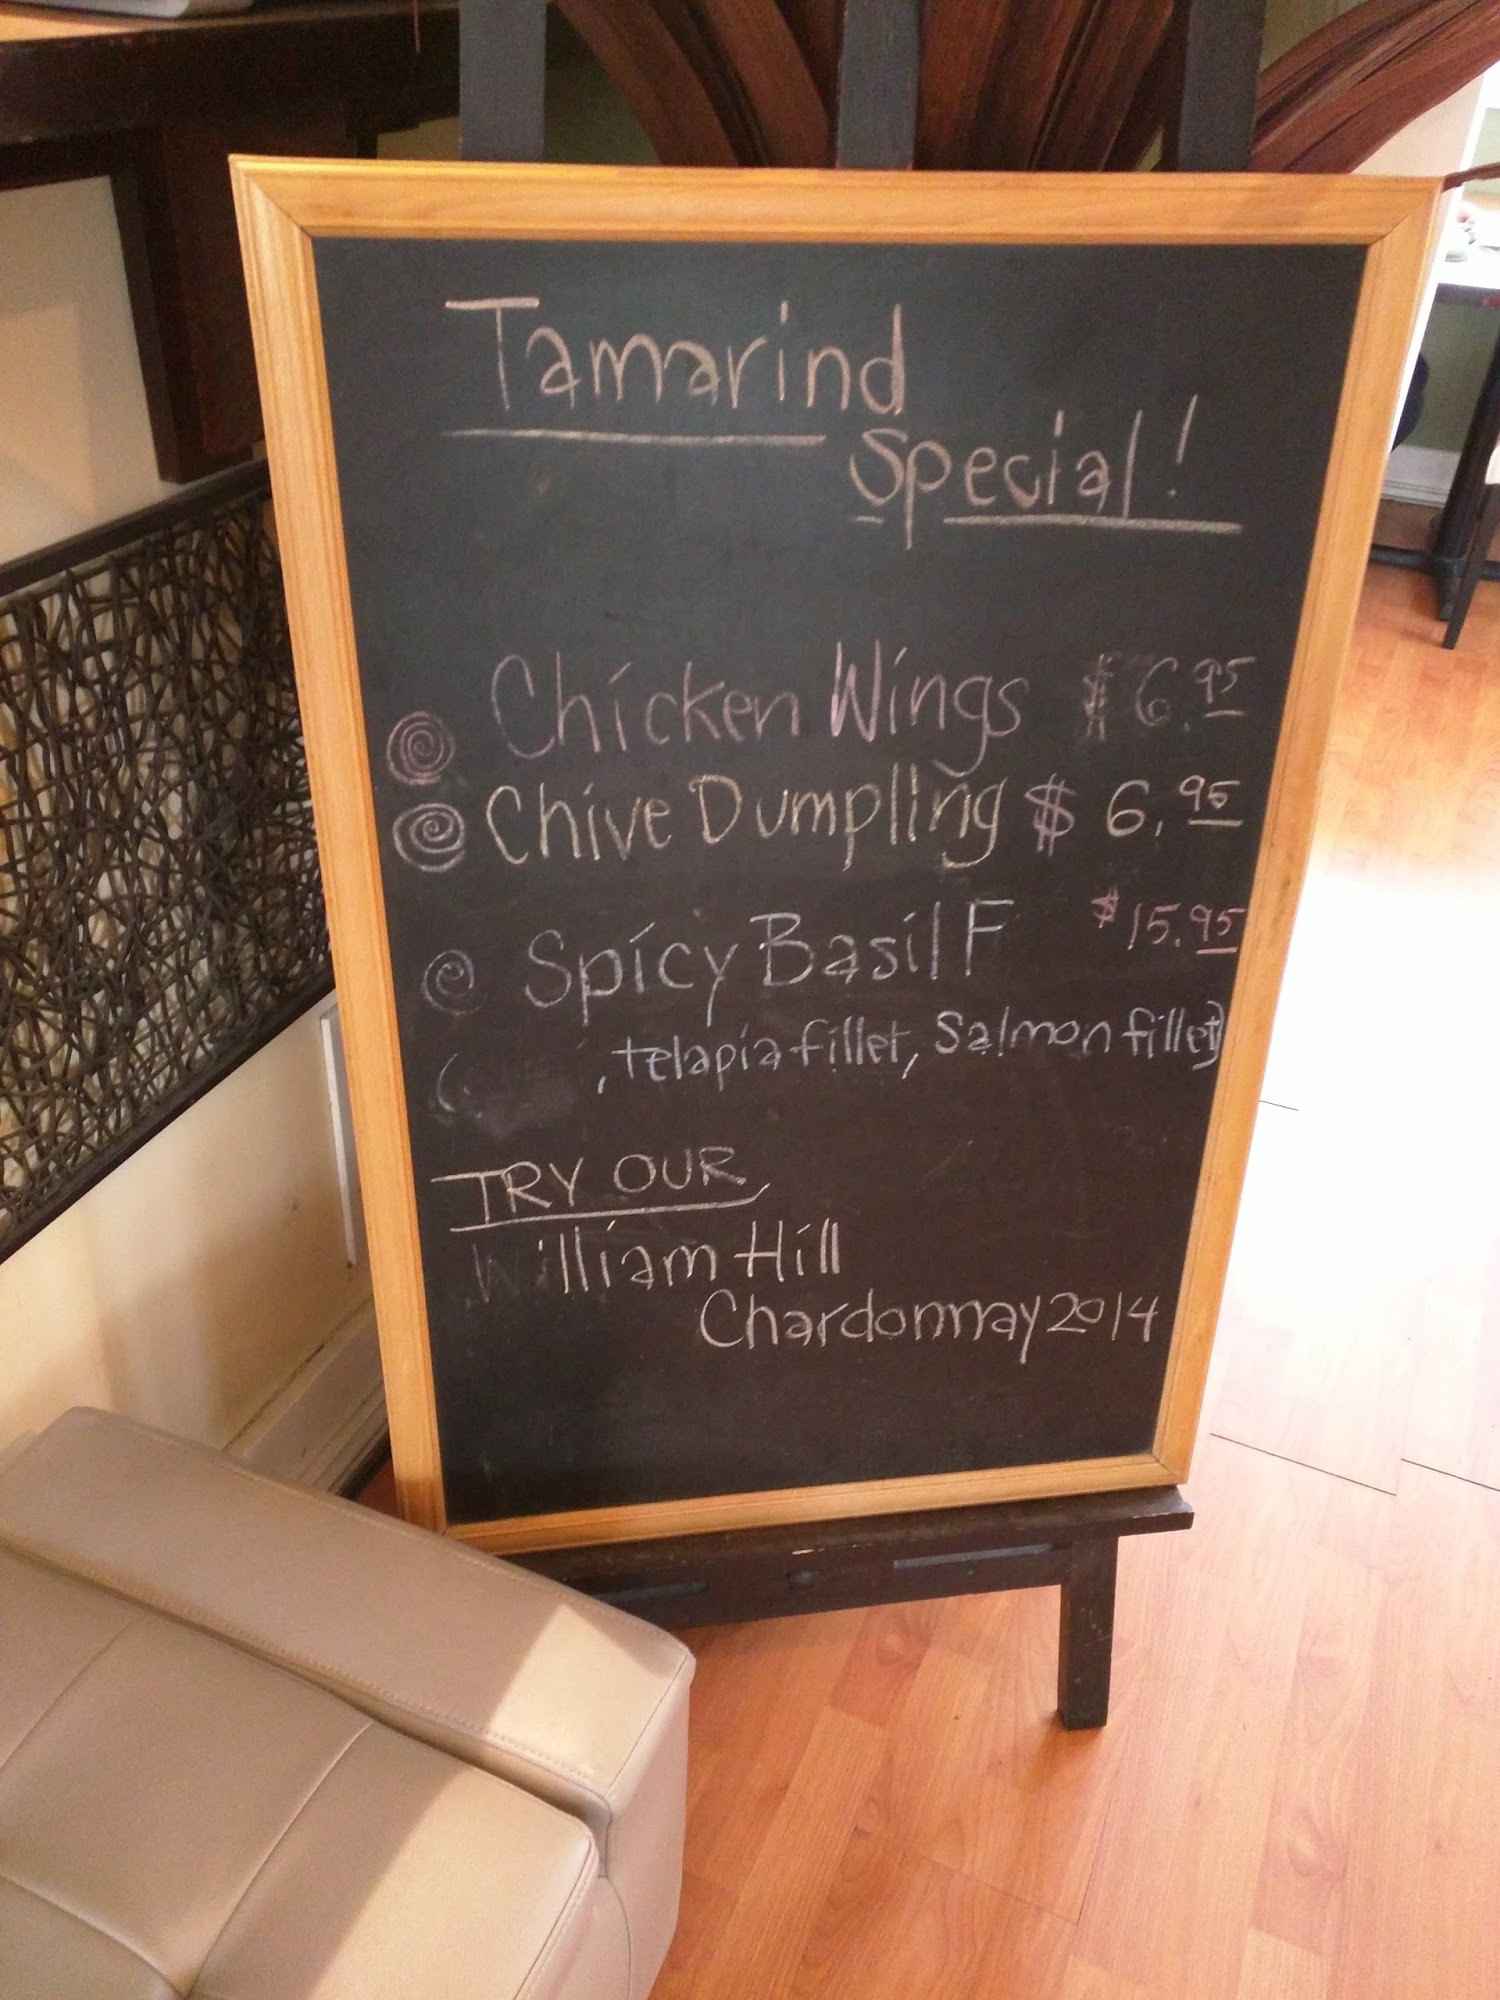 Tamarind
Special!
Chicken Wings $6.95
Chive Dumpling $6.95
Spicy Basil F $15.95
( , telapia fillet, Salmon fillet)
TRY OUR
William Hill
Chardonnay 2014